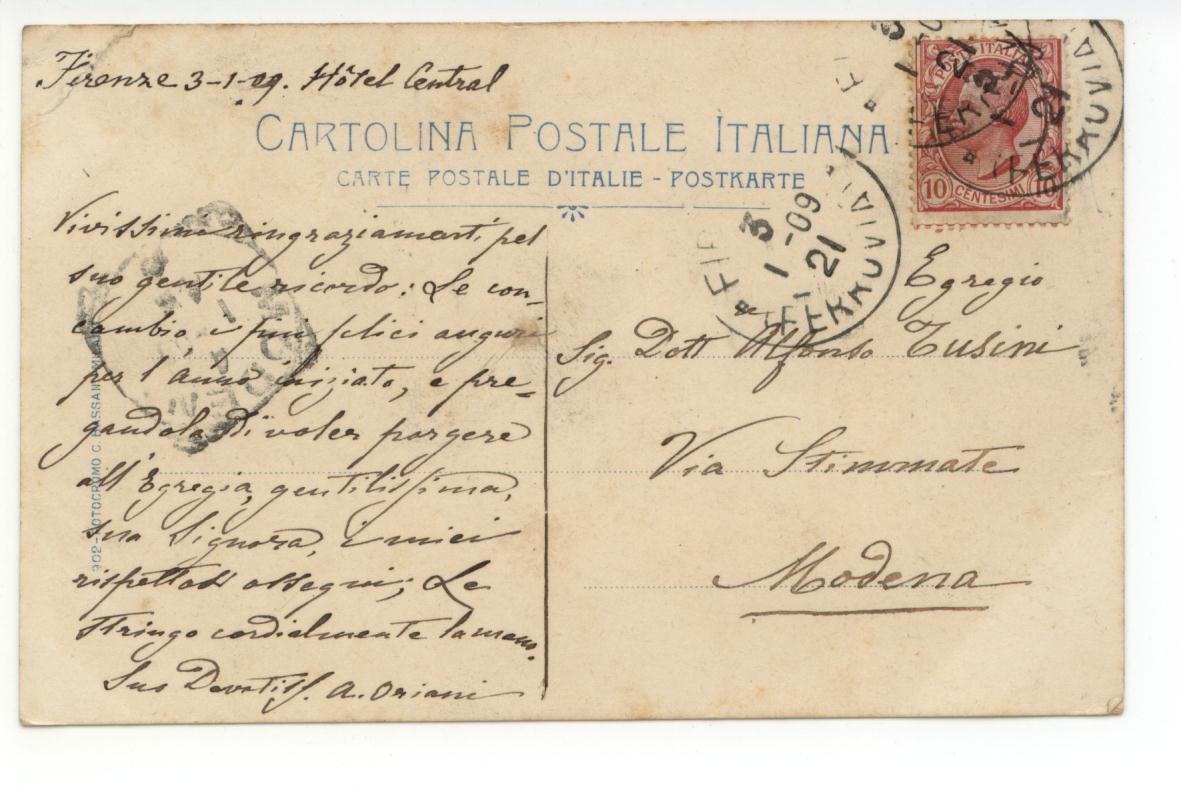 Firenze 3-1-09. Hôtel Central
CARTOLINA POSTALE ITALIANA
CARTE POSTALE D'ITALIE - POSTKARTE
Vivissimi ringraziamenti pel
suo gentile ricordo: Le con-
cambio, i più felici auguri
per l'anno iniziato, e pre-
gandola di voler porgere
all'Egregia, gentilissima,
sua Signora, i miei
rispettosi ossequi; Le
stringo cordialmente la mano.
Suo Devotiss. A. Oriani
Egregio
Sig. Dott Alfonso Tusini
Via Stimmate
Modena
POSTE ITALIANE
10 CENTESIMI 10
3
1-09
21
FERROVIA
3
1
21
FERROVIA
902-FOTOCROMO C.